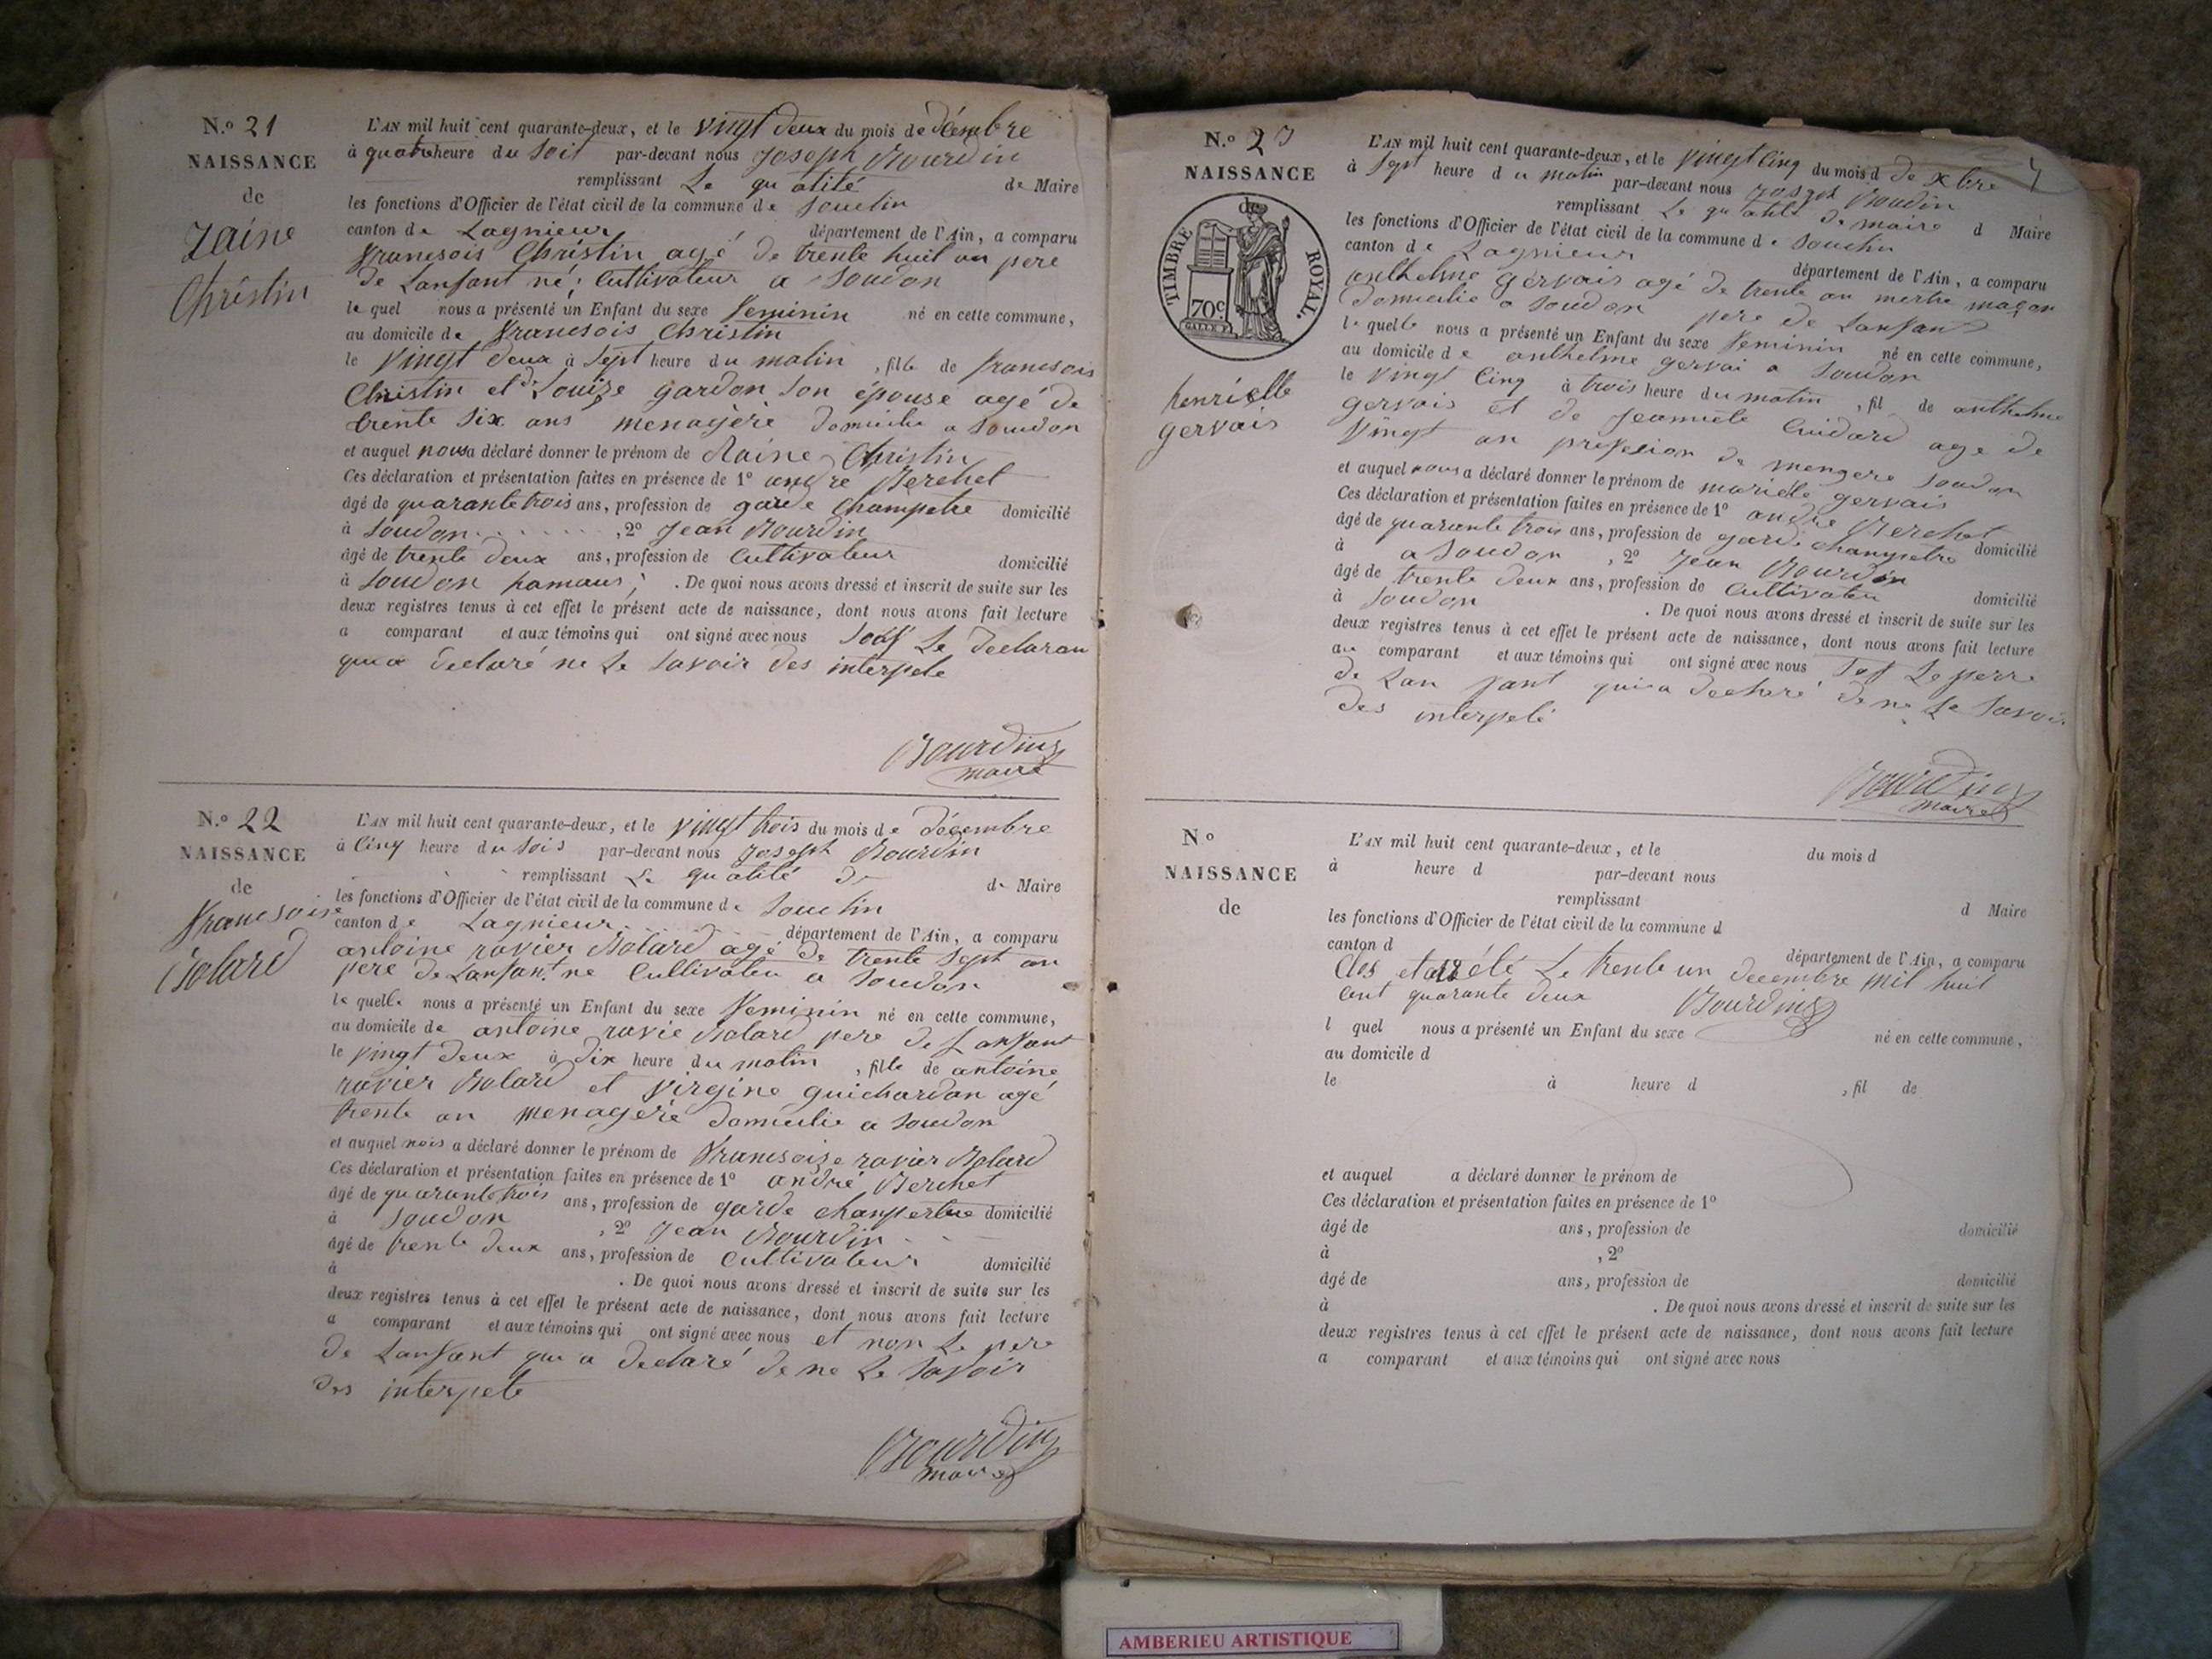 N.o 21
NAISSANCE
de
Zaine
Christin
L'AN mil huit cent quarante-deux, et le vingt deux du mois de décembre
à quatre heure du soit par-devant nous Joseph Bourdin
remplissant Le qu alité de Maire
les fonctions d'Officier de l'état civil de la commune de Souclin
canton de Lagnieur département de l'Ain, a comparu
francsois Christin agé de trente huit an pere
de Lanfant né; Cultivateur a Soudon
le quel nous a présenté un Enfant du sexe feminin né en cette commune,
au domicile de francsois Christin
le vingt deux à Sept heure du matin , fille de francsois
Christin et de Louize gardon Son épouse agé de
trente six ans menagère domicilie a Soudon
et auquel nous a déclaré donner le prénom de Raine Christin
Ces déclaration et présentation faites en présence de 1° andre Berchet
âgé de quarante trois ans, profession de garde Champetre domicilié
à Soudon , 2° Jean Bourdin
âgé de trente deux ans, profession de Cultivateur domicilié
à Soudon hamaus; . De quoi nous avons dressé et inscrit de suite sur les
deux registres tenus à cet effet le présent acte de naissance, dont nous avons fait lecture
a comparant et aux témoins qui ont signé avec nous Soöf Le declaran
qui a declaré ne Le Savoir des interpele
Bourdin
maire
N.o 22
NAISSANCE
de
francsoise
Bolard
L'AN mil huit cent quarante-deux, et le vingt trois du mois de décembre
à Cinq heure du Sois par-devant nous Joseph Bourdin
remplissant Le qu alité de de Maire
les fonctions d'Officier de l'état civil de la commune de Souclin
canton de Lagnieur département de l'Ain, a comparu
antoine ravier Bolard agé de trente Sept an
pere de Lanfant ne Cultivateu a Soudon
le quelle nous a présenté un Enfant du sexe feminin né en cette commune,
au domicile de antoine ravie Bolard pere de Lanfant
le vingt deux à dix heure du matin , fille de antoine
ravier Bolard et virgine guichardon agé
trente an menagère domicilie a Soudon
et auquel nous a déclaré donner le prénom de francsoize ravier Bolard
Ces déclaration et présentation faites en présence de 1° andré Berchet
âgé de quarante trois ans, profession de garde champertre domicilié
à Soudon , 2° Jean Bourdin
âgé de trente deux ans, profession de Cultivateur domicilié
à . De quoi nous avons dressé et inscrit de suite sur les
deux registres tenus à cet effet le présent acte de naissance, dont nous avons fait lecture
a comparant et aux témoins qui ont signé avec nous et non Le pere
de Lanfant qui a declaré de ne Le Savoir
des interpele
Bourdin
maire
N.o 23
NAISSANCE
de
TIMBRE ROYAL.
70c
henriette
gervais
L'AN mil huit cent quarante-deux, et le vingt Cinq du mois d de xbre
à Sept heure du matin par-devant nous Joseph Bourdin
remplissant Le qu alité de maire d Maire
les fonctions d'Officier de l'état civil de la commune de Souclin
canton de Lagnieur département de l'Ain, a comparu
anthelme gervais agé de trente an metre maçon
domicilie a Soudon pere de Lanfant
le quelle nous a présenté un Enfant du sexe feminin né en cette commune,
au domicile de anthelme gervai a Soudon
le vingt Cinq à trois heure du matin , fil de anthelme
gervais et de Jeamiete Cuidard age de
vingt an profesion de mengere Soudon
et auquel nous a déclaré donner le prénom de mariete gervais
Ces déclaration et présentation faites en présence de 1° andre Berchet
âgé de quarante trois ans, profession de garde champetre domicilié
à a Soudon , 2° Jean Bourdin
âgé de trente deux ans, profession de Cultivateu domicilié
à Soudon . De quoi nous avons dressé et inscrit de suite sur les
deux registres tenus à cet effet le présent acte de naissance, dont nous avons fait lecture
au comparant et aux témoins qui ont signé avec nous Sof Le perre
de Lan fant qui a declaré de ne Le Savoir
des interpelé
Bourdin
maire
N°
NAISSANCE
de
L'AN mil huit cent quarante-deux, et le du mois d
à heure d par-devant nous
remplissant d Maire
les fonctions d'Officier de l'état civil de la commune d
canton d département de l'Ain, a comparu
Clos et arété Le trente un decembre mil huit
Cent quarante deux Bourdin
l quel nous a présenté un Enfant du sexe né en cette commune,
au domicile d
le à heure d , fil de
et auquel a déclaré donner le prénom de
Ces déclaration et présentation faites en présence de 1°
âgé de ans, profession de domicilié
à , 2°
âgé de ans, profession de domicilié
à . De quoi nous avons dressé et inscrit de suite sur les
deux registres tenus à cet effet le présent acte de naissance, dont nous avons fait lecture
a comparant et aux témoins qui ont signé avec nous
AMBERIEU ARTISTIQUE